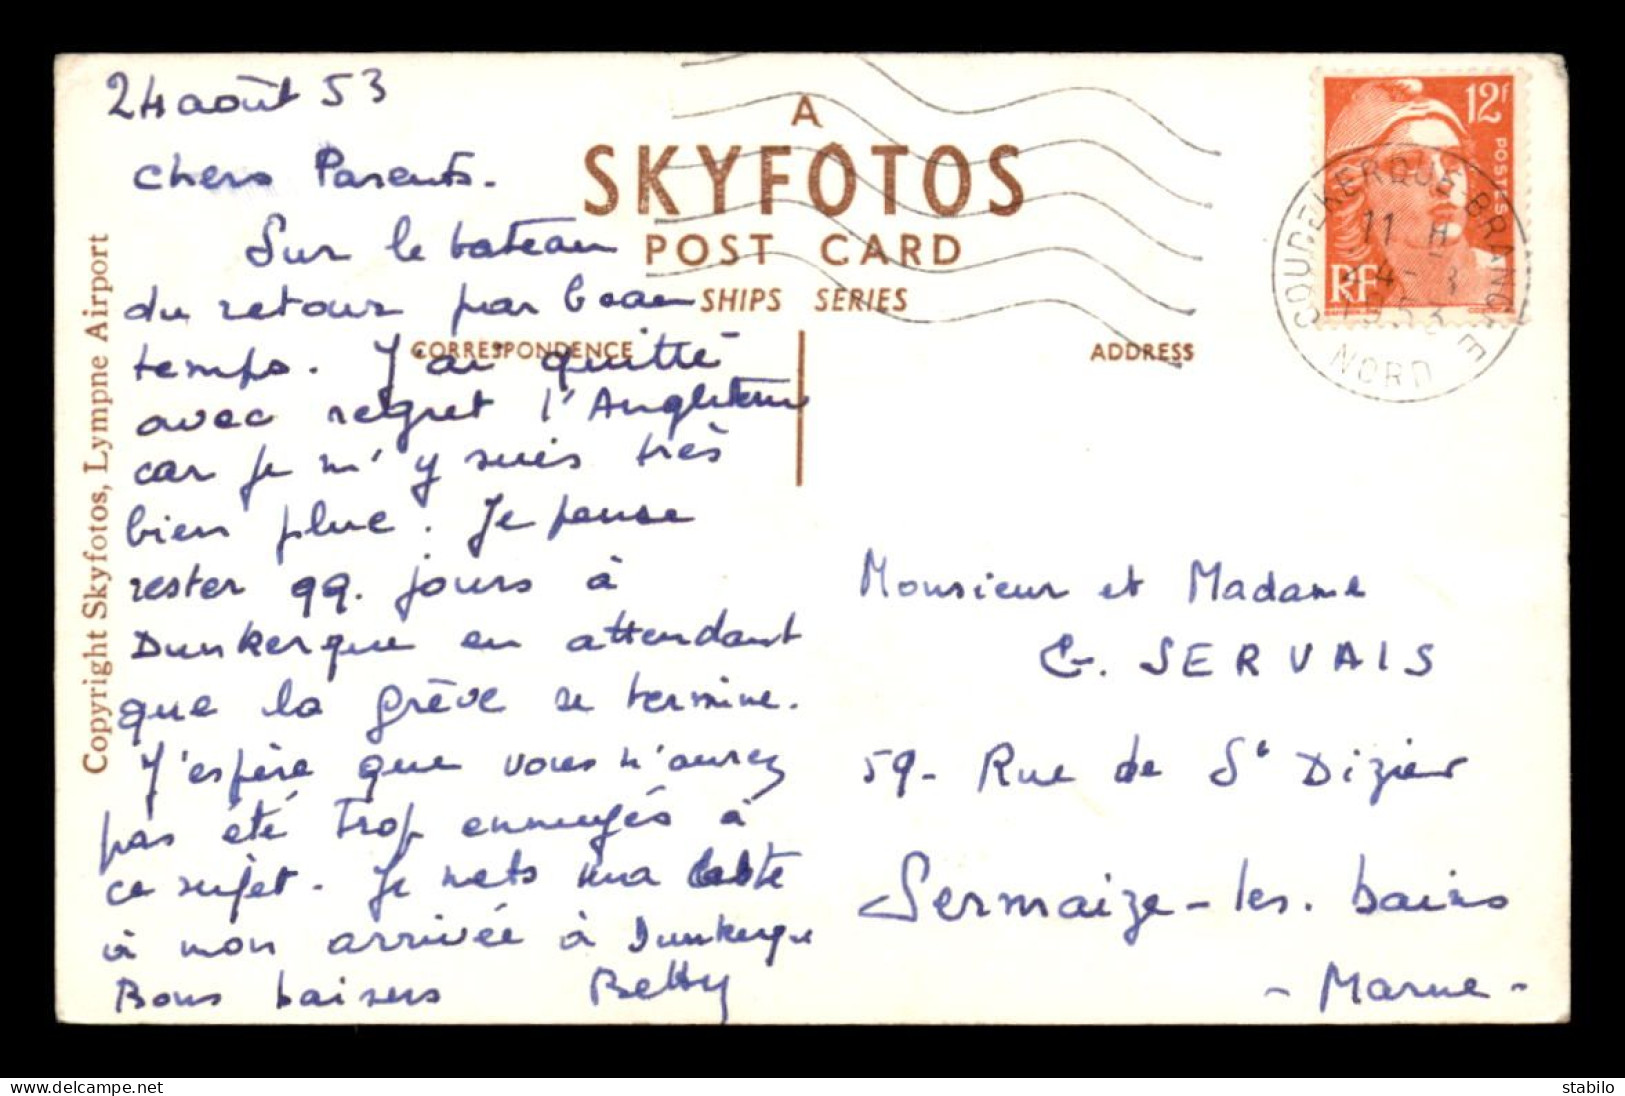 24 août 53
Chers Parents.
Sur le bateau
du retour par beau
temps. J'ai quitté
avec regret l'Angleterre
car je m'y suis très
bien plue. Je pense
rester qq. jours à
Dunkerque en attendant
que la grève se termine.
J'espère que vous n'aurez
pas été trop ennuyés à
ce sujet. Je mets une
à mon arrivée à Dunkerque
Bons baisers Betty
A
SKYFOTOS
POST CARD
SHIPS SERIES
CORRESPONDENCE
ADDRESS
Copyright Skyfotos, Lympne Airport
12f
POSTES
RF
COUDEKERQUE-BRANCHE
11 H
24-8
1953
NORD
Monsieur et Madame
C. SERVAIS
59- Rue de St Dizier
Sermaize-les-bains
- Marne -
stabilo
delcampe.net